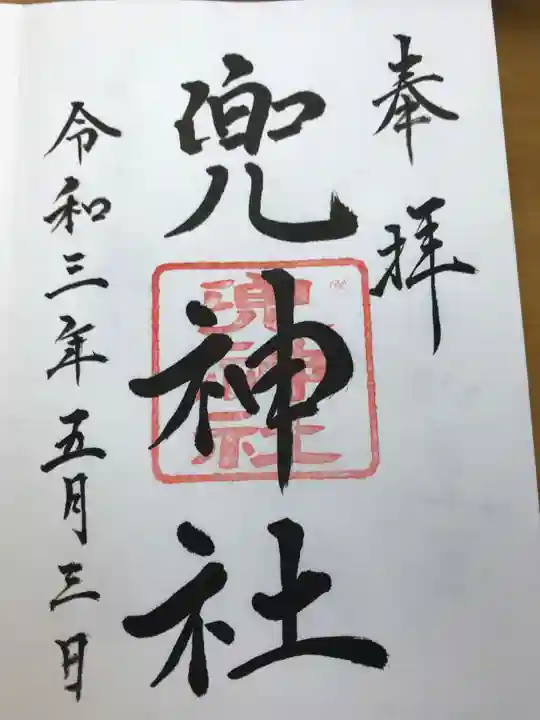 奉拝
兜神社
令和三年五月三日